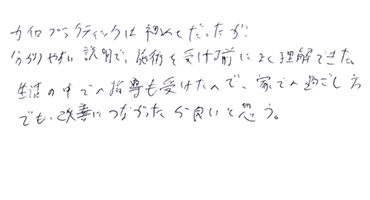 カイロプラクティックは初めてだったが、
分かりやすい説明で、施術を受け前によく理解できた。
生活の中での指導も受けたので、家での過ごし方
でも、改善につながったら良いと思う。